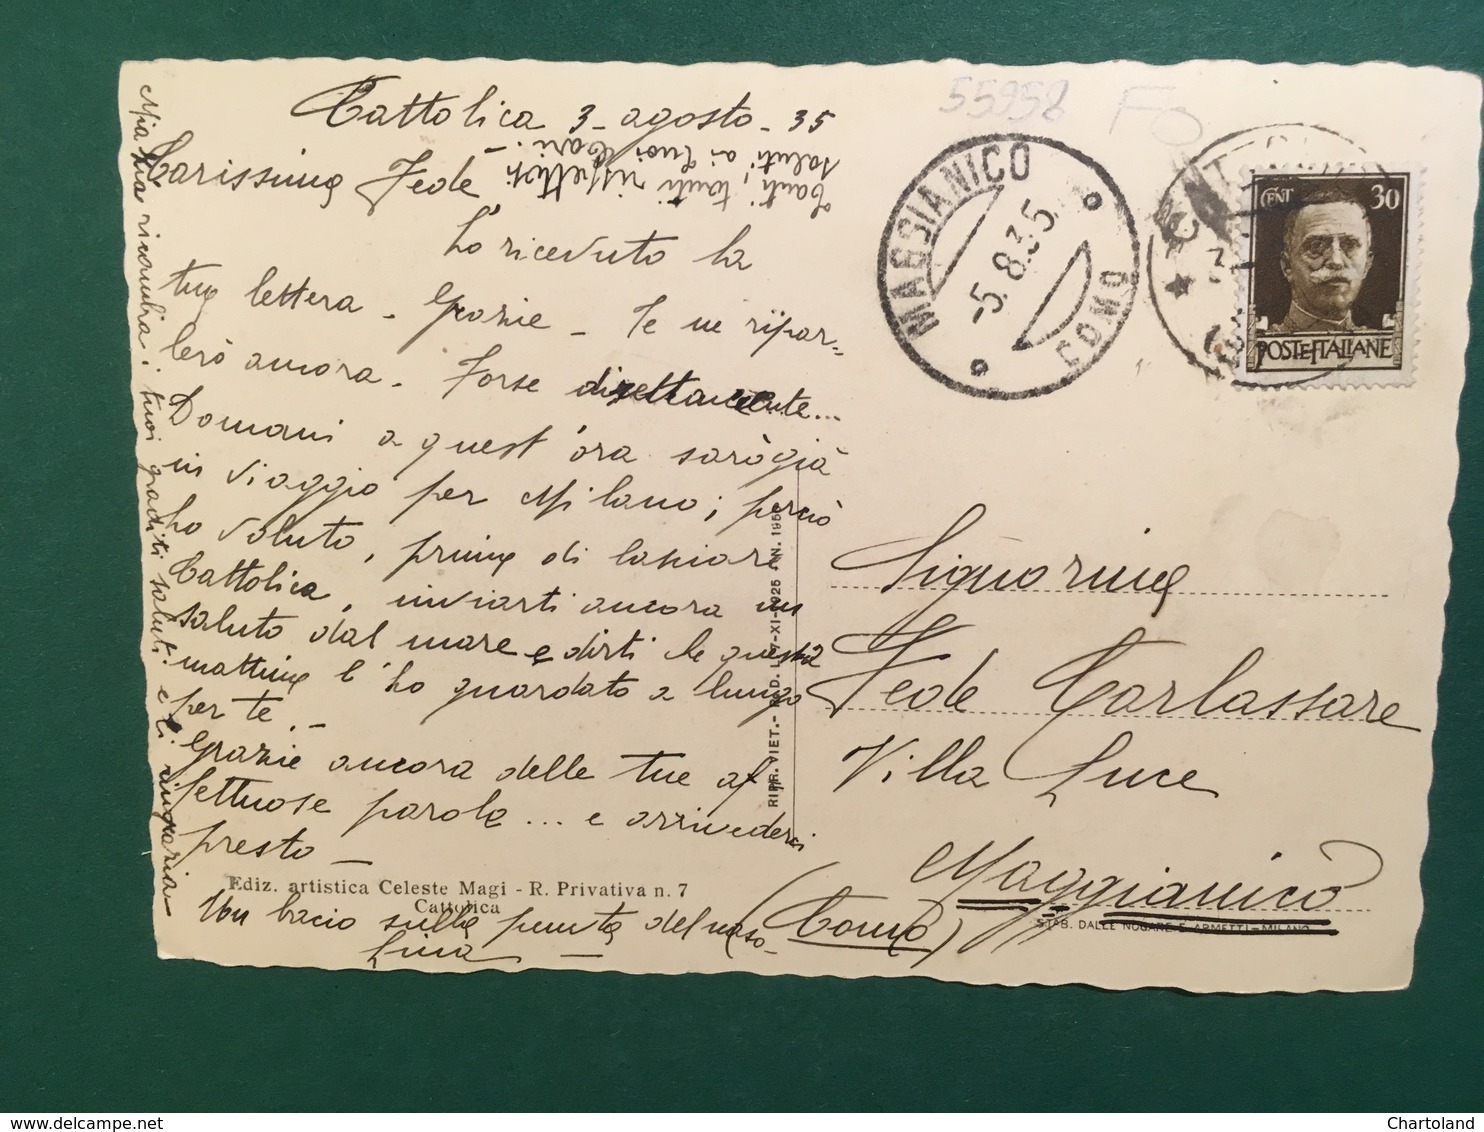 Cattolica 3 - agosto - 35
Carissima Fede
Tanti, tanti rispettosi
saluti ai tuoi Cari. -
ho ricevuto la
tua lettera - Grazie - Te ne ripar-
lerò ancora - Forse direttamente...
Domani a quest'ora sarò già
in viaggio per Milano; perciò
ho voluto, prima di lasciare
Cattolica, inviarti ancora un
saluto dal mare e dirti che questa
mattina l'ho guardato a lungo
per te. -
Grazie ancora delle tue af-
fettuose parole ... e arrivederci
presto -
Un bacio sulla punta del naso -
Lina -
Mia zia ricambia i tuoi graditi saluti e ti ringrazia
Ediz. artistica Celeste Magi - R. Privativa n. 7
Cattolica
RIPR. VIET. - LUT-XI-1925 N. 195
55958
FO
MAGGIANICO
-5.8.35
COMO
CENT 30
POSTE ITALIANE
Signorina
Fede Carlassare
Villa Luce
Maggianico
(Como)
STAB. DALLE NOGARE E ARMETTI - MILANO
Chartoland
www.delcampe.net